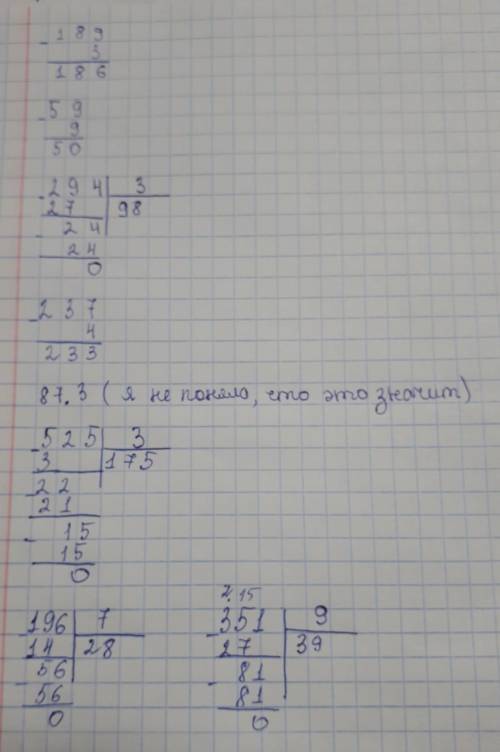 - 189
3
186
- 59
9
50
- 294 | 3
27 | 98
- 24
24
0
- 237
4
233
87.3 ( я не поняла, что это значит)
- 525 | 3
3 | 175
- 22
21
- 15
15
0
- 196 | 7
14 | 28
- 56
56
0
2.15
- 351 | 9
27 | 39
- 81
81
0